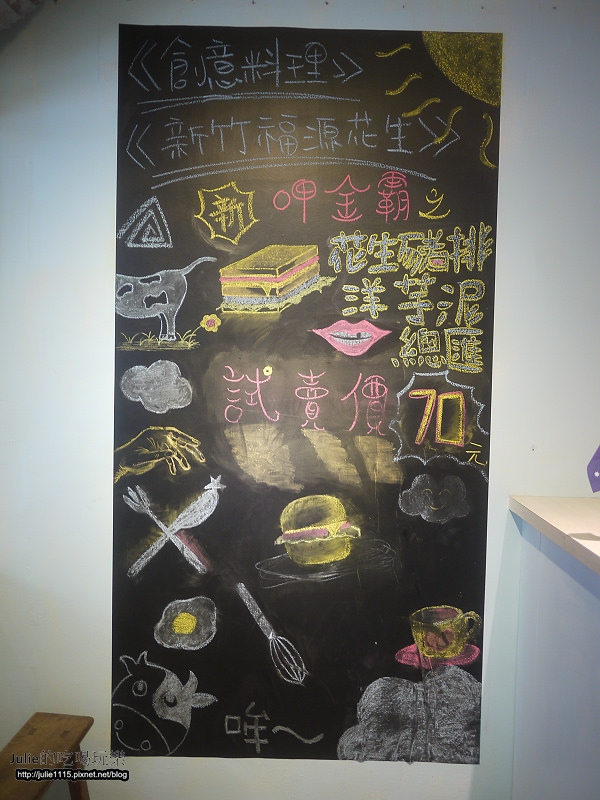 《創意料理》
《新竹福源花生》
新 呷金霸之
花生豬排
洋芋泥
總匯
試賣價 70元
哞～
Julie的吃喝玩樂
http://julie1115.pixnet.net/blog